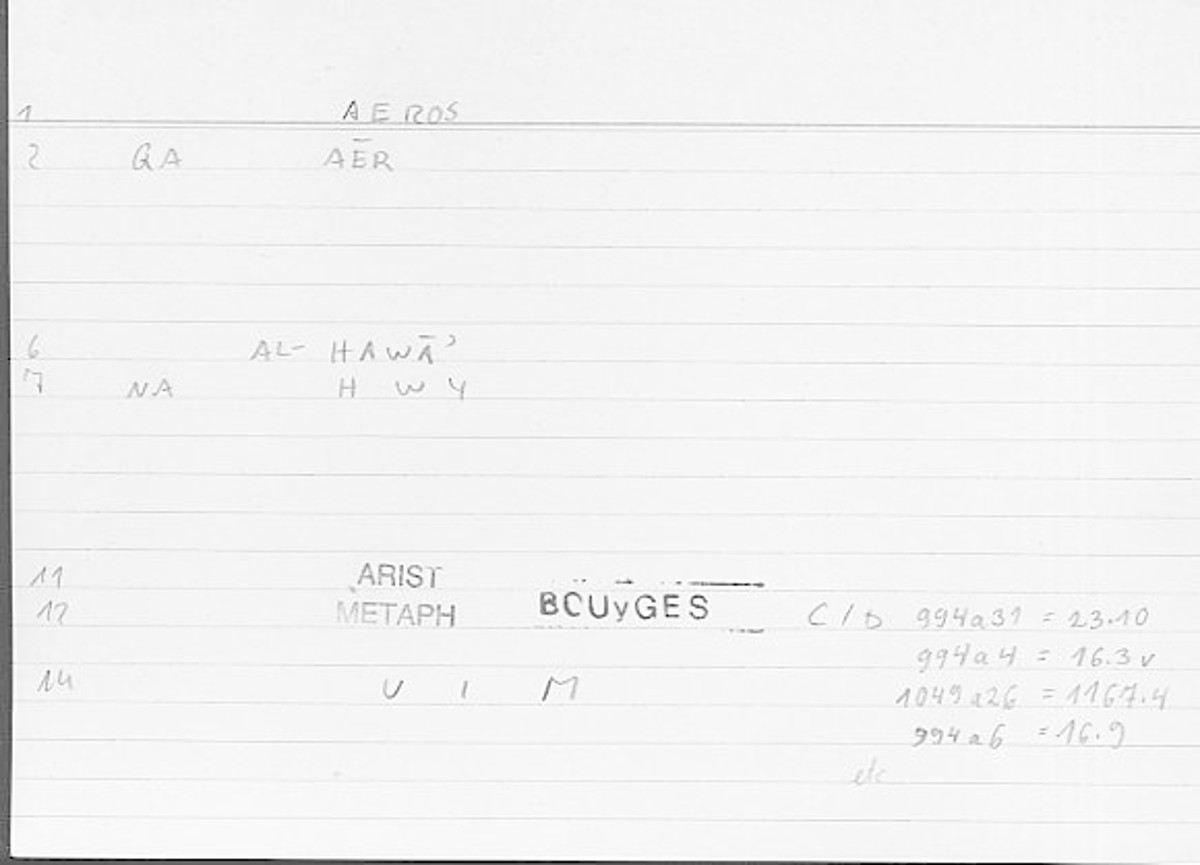 1 AEROS
2 GA AĒR
6 AL- HAWĀʾ
7 NA H W Y
11 ARIST
12 METAPH BOUyGES C/D 994a31 = 23.10
994a4 = 16.3 v
14 U I M 1049a26 = 1167.4
994a6 = 16.9
etc